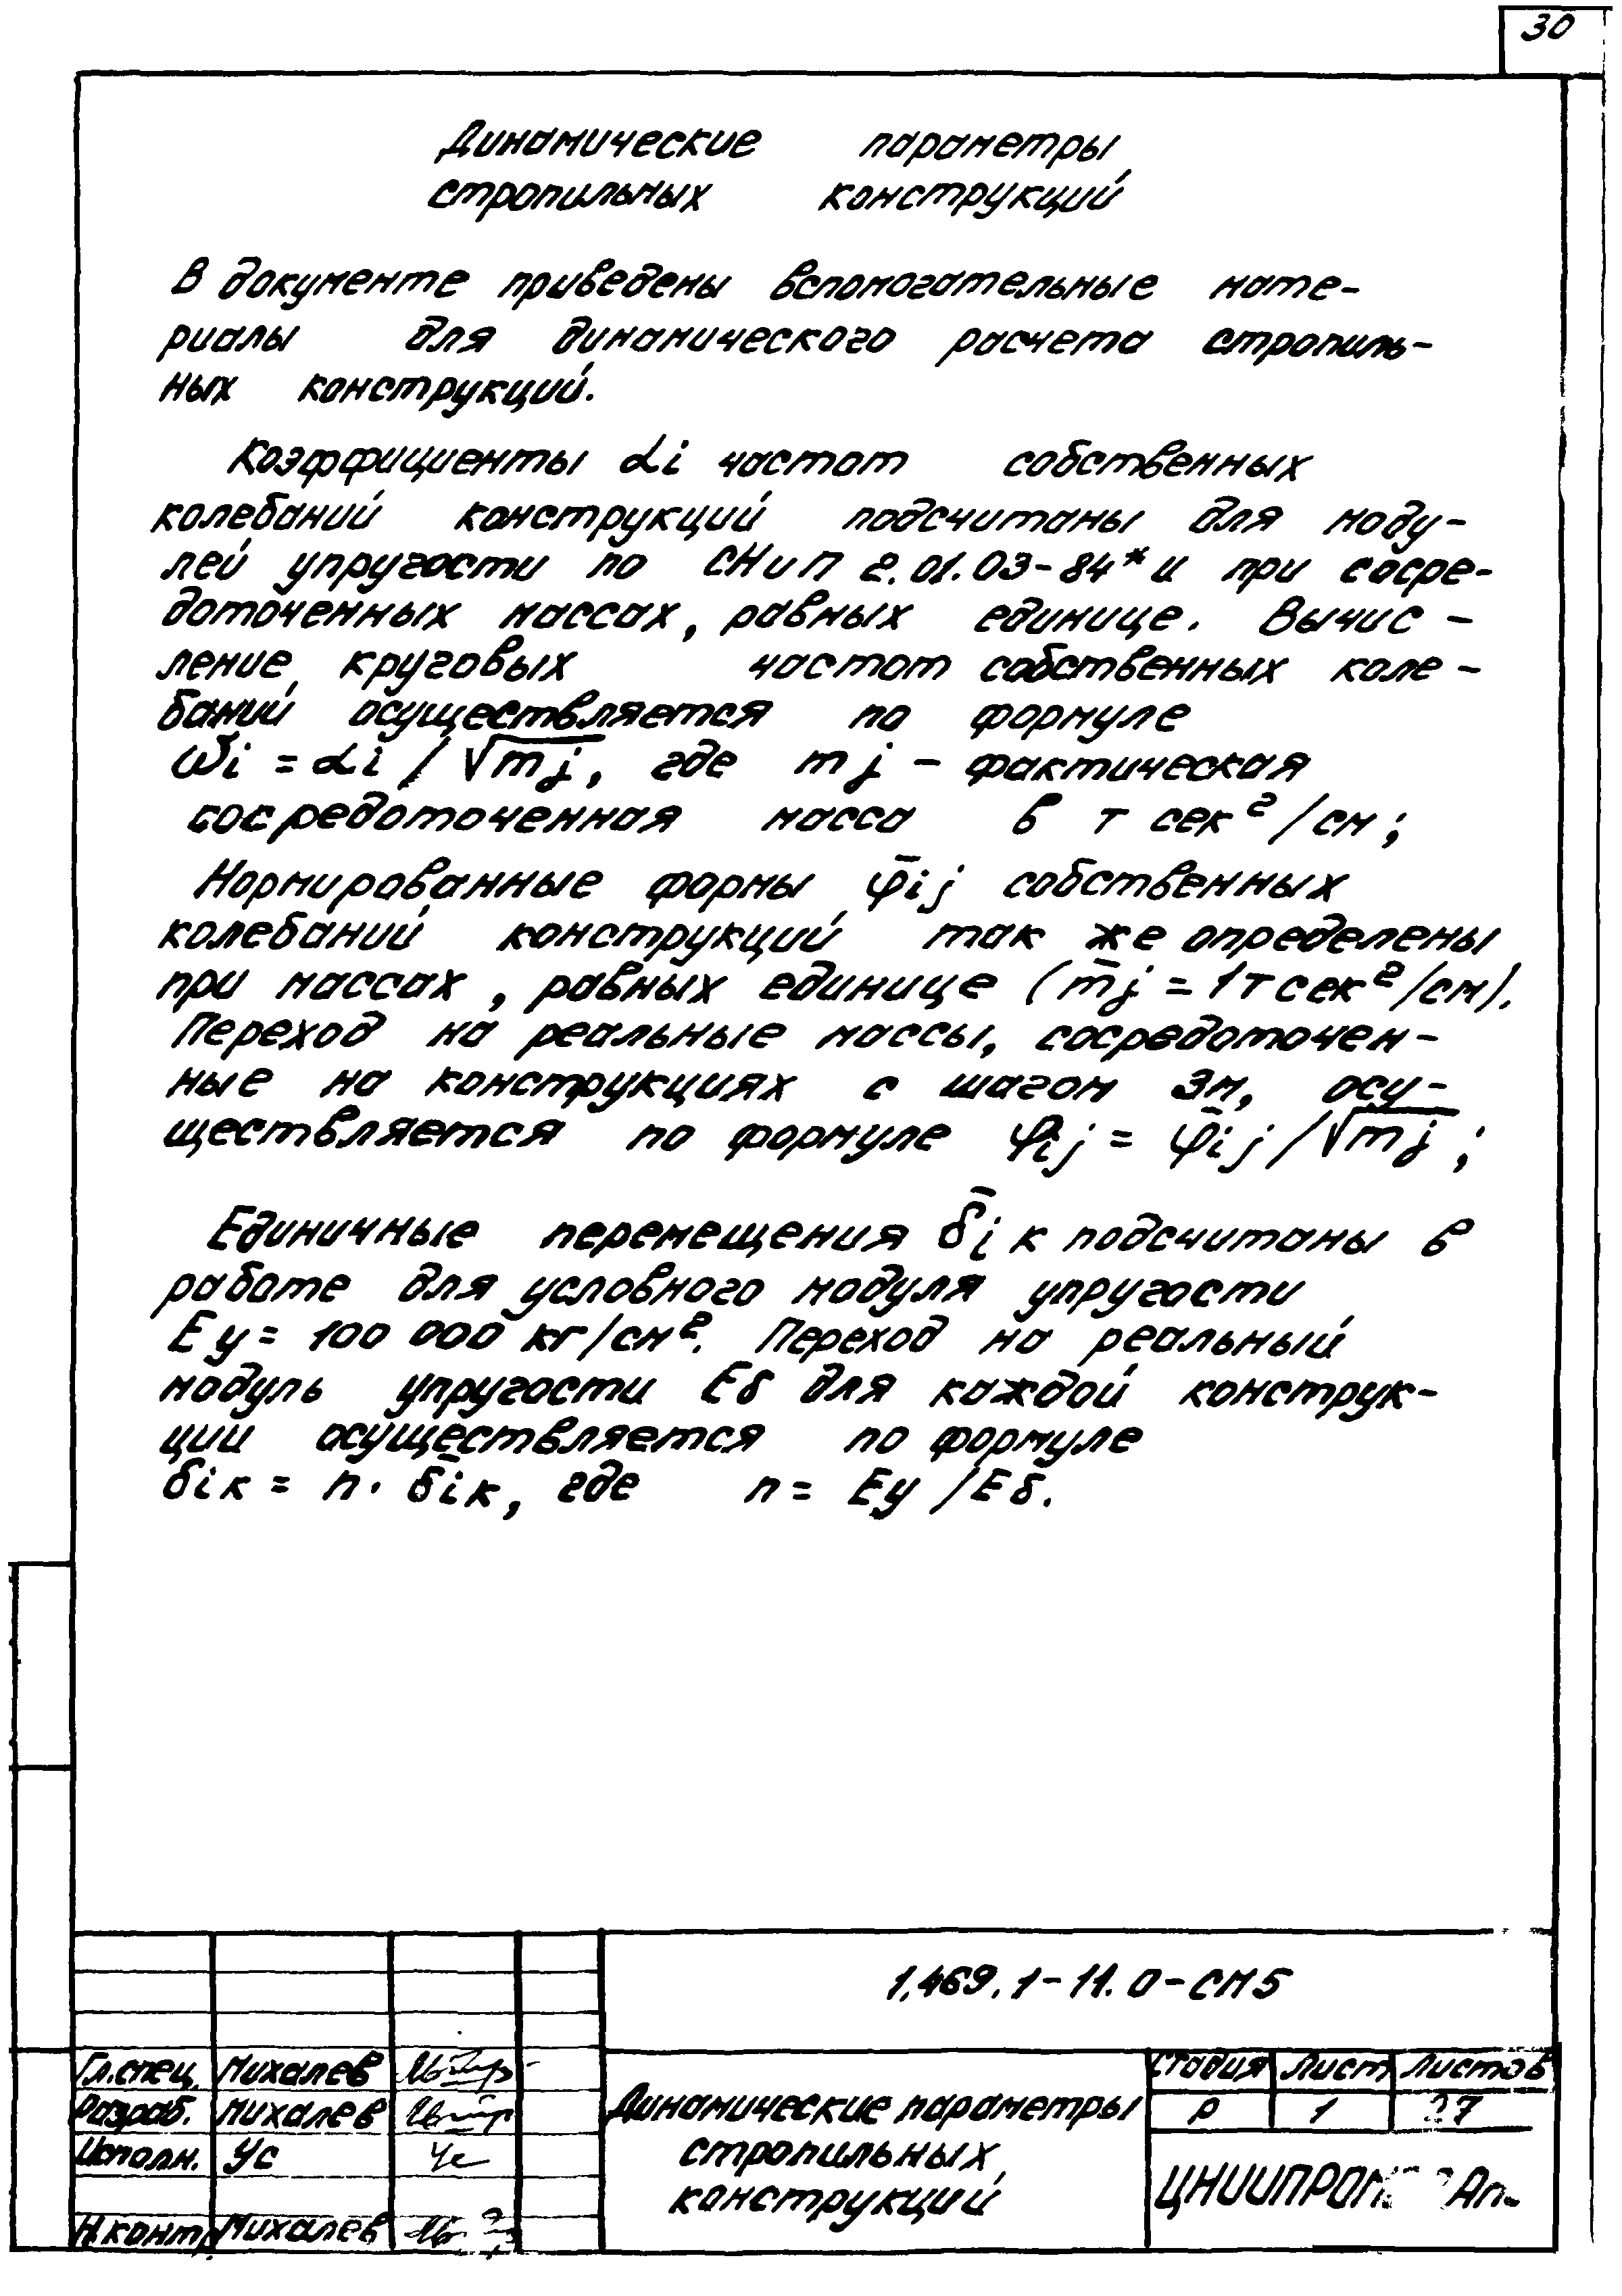 30
Динамические параметры
стропильных конструкций
В документе приведены вспомогательные мате-
риалы для динамического расчета стропиль-
ных конструкций.
Коэффициенты αi частот собственных
колебаний конструкций подсчитаны для моду-
лей упругости по СНиП 2.01.03-84* и при сосре-
доточенных массах, равных единице. Вычис-
ление круговых частот собственных коле-
баний осуществляется по формуле
ωi = αi / √mj, где mj - фактическая
сосредоточенная масса в т сек²/см;
Нормированные формы φ̄ij собственных
колебаний конструкций так же определены
при массах, равных единице (m̄j = 1т сек²/см).
Переход на реальные массы, сосредоточен-
ные на конструкциях с шагом 3м, осу-
ществляется по формуле φij = φ̄ij / √mj;
Единичные перемещения δ̄iк подсчитаны в
работе для условного модуля упругости
Еу = 100 000 кг/см². Переход на реальный
модуль упругости Еб для каждой конструк-
ции осуществляется по формуле
δiк = n · δ̄iк, где n = Еу / Еб.
1.469.1-11.0-СМ5
Гл.спец. Михалев
Разраб. Михалев
Исполн. Ус
Н.контр. Михалев
Динамические параметры
стропильных
конструкций
Стадия Лист Листов
Р 1 27